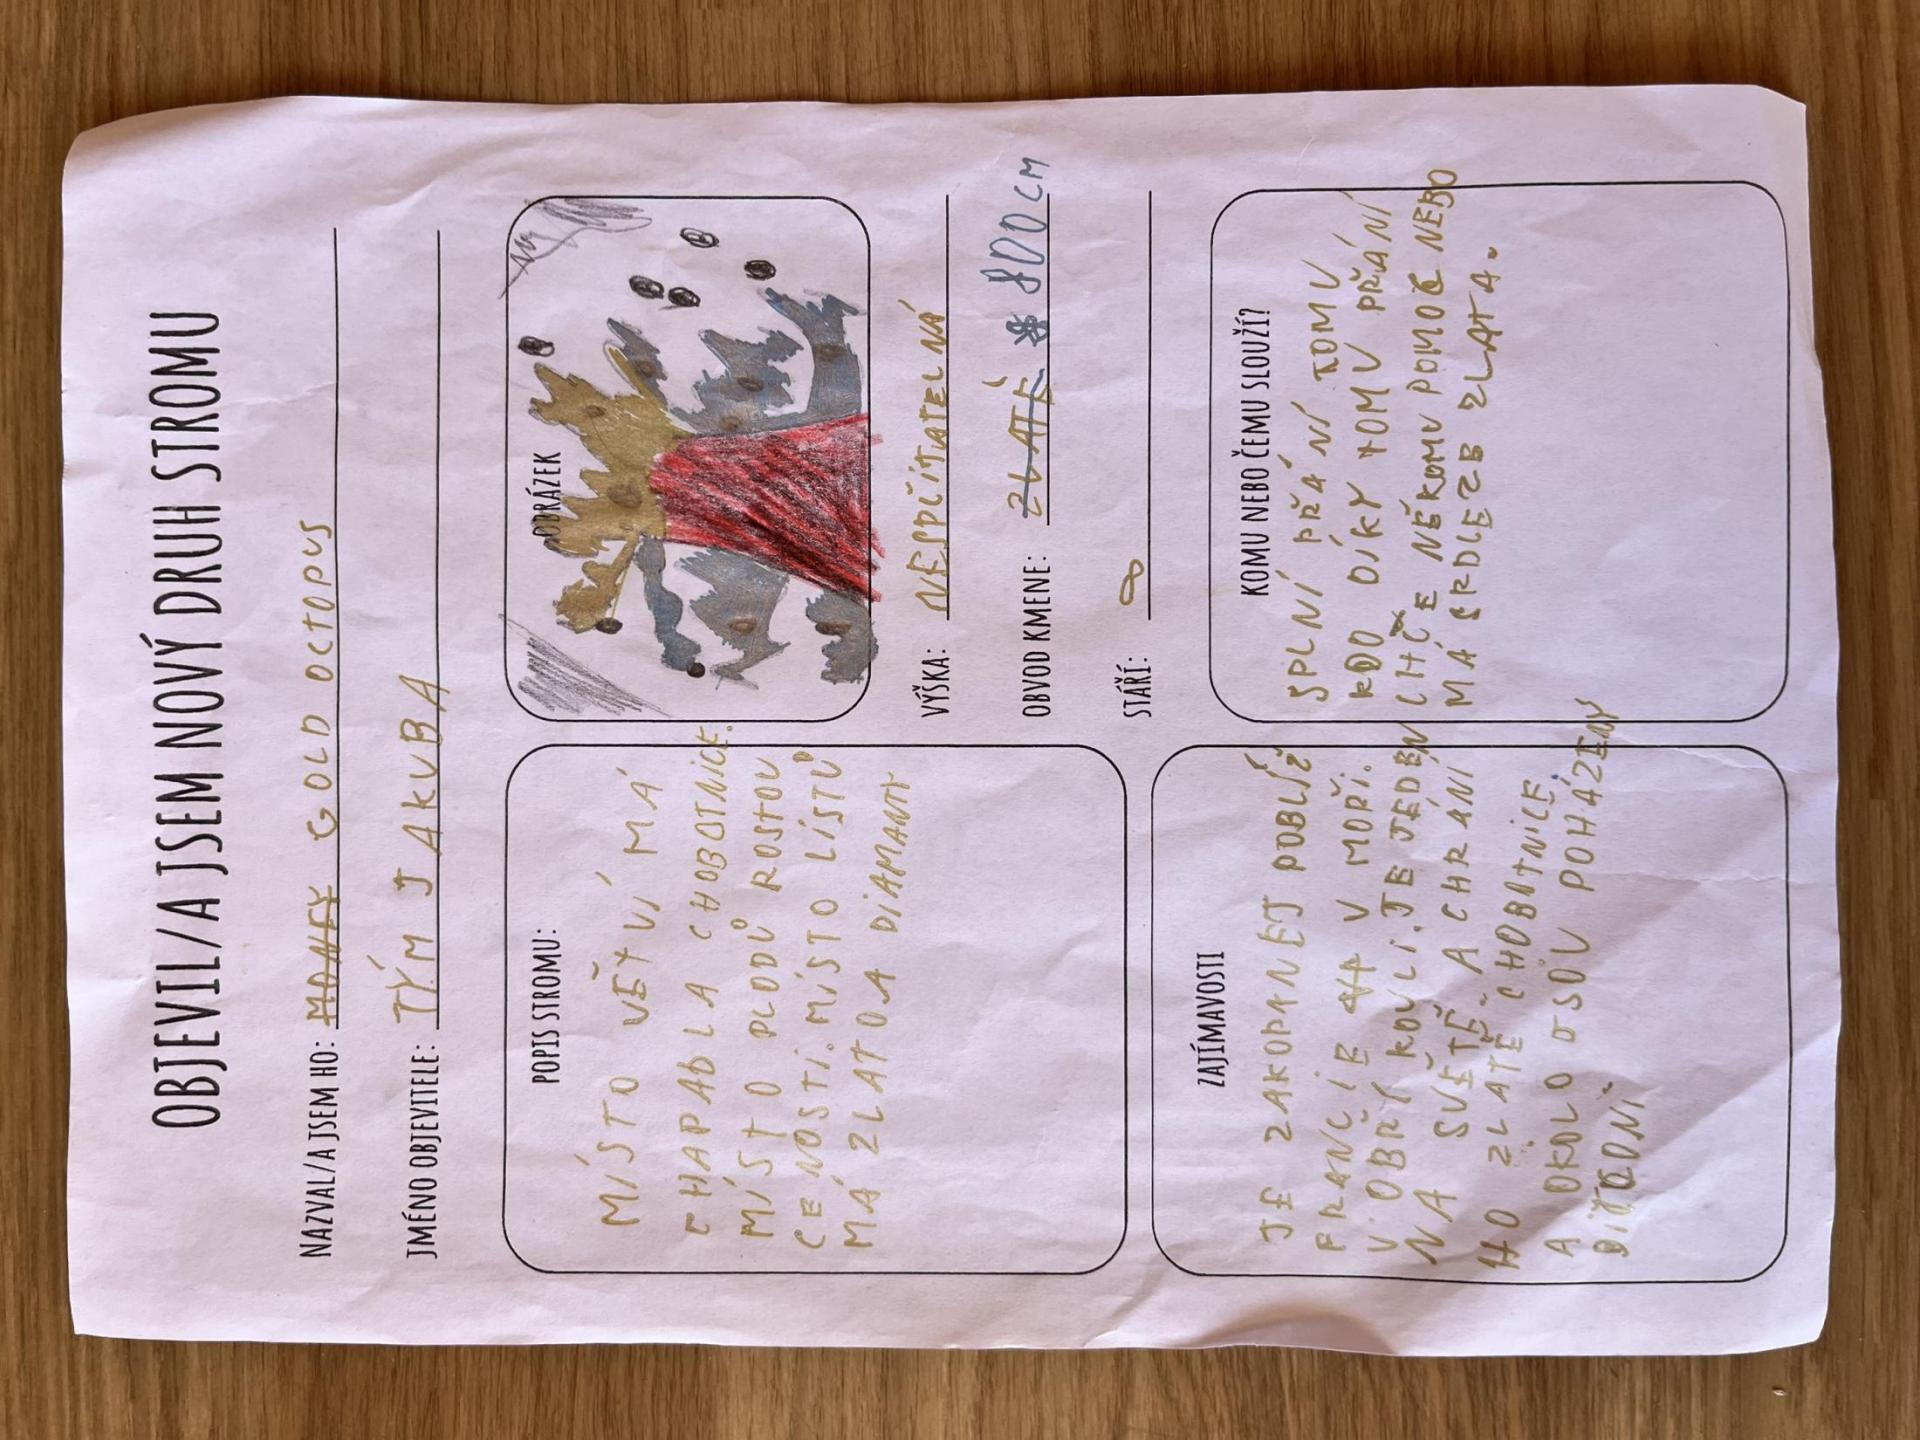 OBJEVIL/A JSEM NOVÝ DRUH STROMU
NAZVAL/A JSEM HO: MONEY GOLD OCTOPUS
JMÉNO OBJEVITELE: TÝM JAKUBA
POPIS STROMU:
MÍSTO VĚTVÍ MÁ
CHAPADLA CHOBOTNICE.
MÍSTO PLODŮ ROSTOU
CENOSTI. MÍSTO LISTŮ
MÁ ZLATO A DIAMANTY
OBRÁZEK
VÝŠKA: NESPČITATELNÁ
OBVOD KMENE: ZLATÉ 800CM
STÁŘÍ: ∞
ZAJÍMAVOSTI
JE ZAKOPANEJ POBLÍŽ
FRANCIE V MOŘI.
V OBŘÍ KOULI. JE JEDEN
NA SVĚTĚ A CHRÁNÍ
HO ZLATÉ CHOBOTNICE
A OKOLO JSOU POHÁZENÝ
KOMU NEBO ČEMU SLOUŽÍ?
SPLNÍ PŘÁNÍ TOMU
KDO DÍKY TOMU PŘÁNÍ
CHCE NĚKOMU POMOC NEBO
MÁ SRDLE ZE ZLATA.